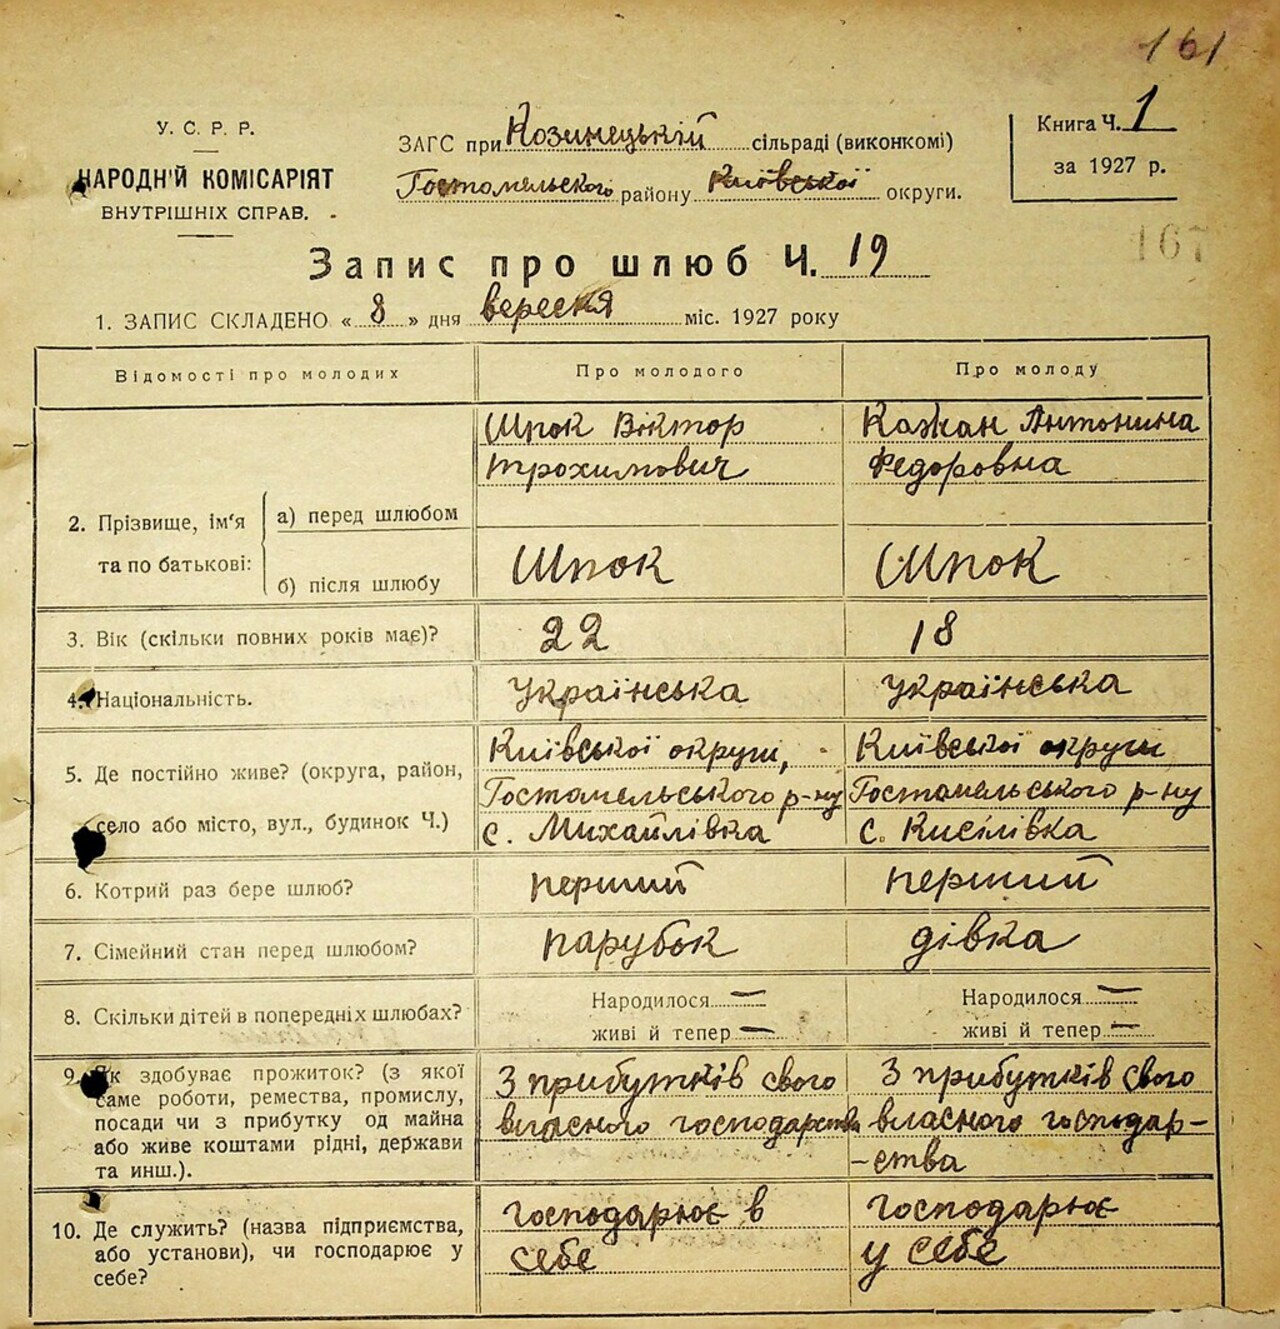 161
У. С. Р. Р.
НАРОДН'Й КОМІСАРІЯТ
ВНУТРІШНІХ СПРАВ.
ЗАГС при Козинецькій сільраді (виконкомі)
Гостомельского району Київської округи.
Книга Ч. 1
за 1927 р.
167
Запис про шлюб Ч. 19
1. ЗАПИС СКЛАДЕНО « 8 » дня вересня міс. 1927 року
Відомості про молодих
Про молодого
Про молоду
2. Прізвище, ім'я
та по батькові:
а) перед шлюбом
Шпок Віктор
трохимович
Кажан Антонина
Федоровна
б) після шлюбу
Шпок
Шпок
3. Вік (скільки повних років має)?
22
18
4. Національність.
Українська
Українська
5. Де постійно живе? (округа, район,
село або місто, вул., будинок Ч.)
Київської округи,
Гостомельського р-ну
с. Михайлівка
Київської округи
Гостомельського р-ну
с. Кисілівка
6. Котрий раз бере шлюб?
перший
перший
7. Сімейний стан перед шлюбом?
парубок
дівка
8. Скільки дітей в попередніх шлюбах?
Народилося —
живі й тепер —
Народилося —
живі й тепер —
9. Як здобуває прожиток? (з якої
саме роботи, ремества, промислу,
посади чи з прибутку од майна
або живе коштами рідні, держави
та инш.).
З прибутків свого
власного господарства
З прибутків свого
власного господар-
-ства
10. Де служить? (назва підприємства,
або установи), чи господарює у
себе?
господарює в
себе
господарює
у себе